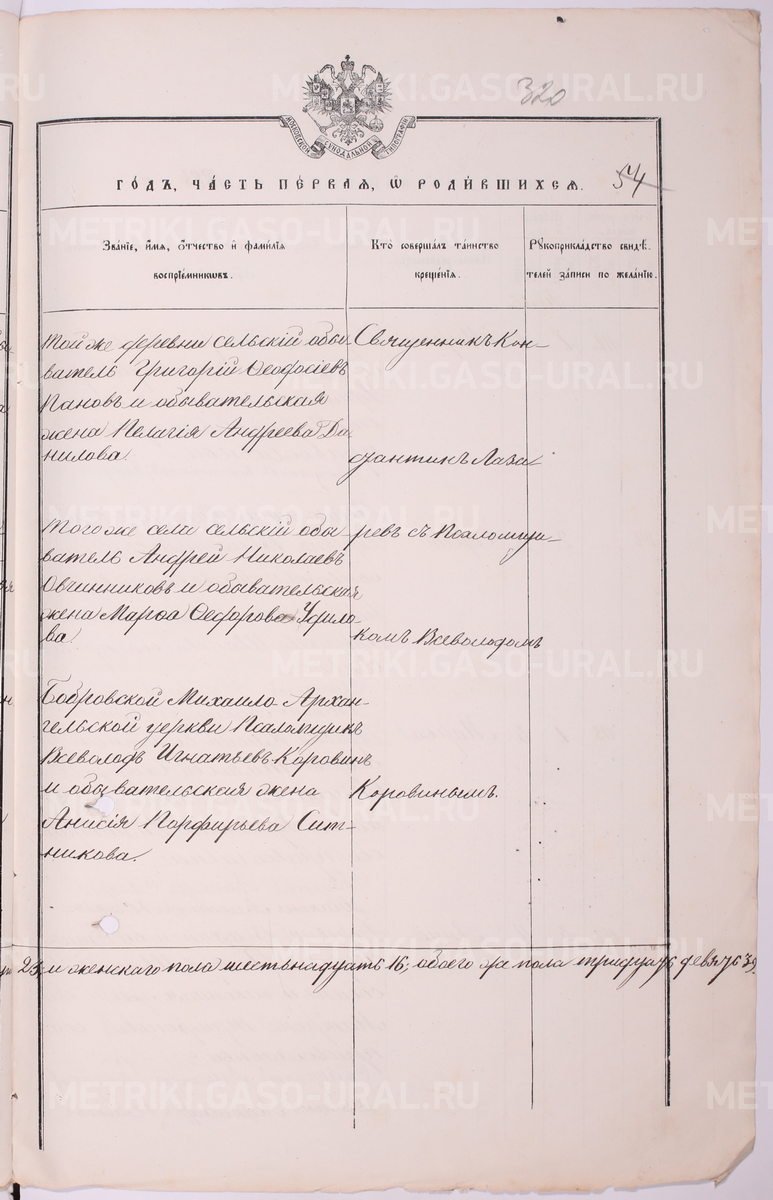 320
МОСКОВСКОЙ СѴНОДАЛЬНОЙ ТИПОГРАФІИ
ГО́ДЪ, ЧА́СТЬ ПЕ́РВАЯ, Ѿ РОДИ́ВШИХСЯ.
54
Зва́ніе, и́мя, о́тчество и҆ фами́лія
воспріе́мниковъ.
Кто̀ соверша́лъ та́инство
креще́нія.
Рꙋкоприкла́дство свидѣ́-
телей за́писи по жела́нію.
Той же деревни сельскій обы-
ватель Григорій Ѳеодосіевъ
Пановъ и обывательская
жена Пелагія Андреева Да-
нилова.
Священникъ Кон-
стантинъ Лаза
Того же села сельскій обы
ватель Андрей Николаевъ
Овчинниковъ и обывательская
жена Марѳа Ѳедорова
ва
ревъ съ Псаломщи-
комъ Всеволодомъ
Бобровской Михаило Архан-
гельской церкви Псаломщикъ
Всеволодъ Игнатьевъ Коровинъ
и обывательская жена
Анисія Порфирьева Сит-
никова.
Коровинымъ.
23; и женскаго пола шестьнадцать 16; обоего же пола тридцать девять 39.
METRIKI.GASO-URAL.RU